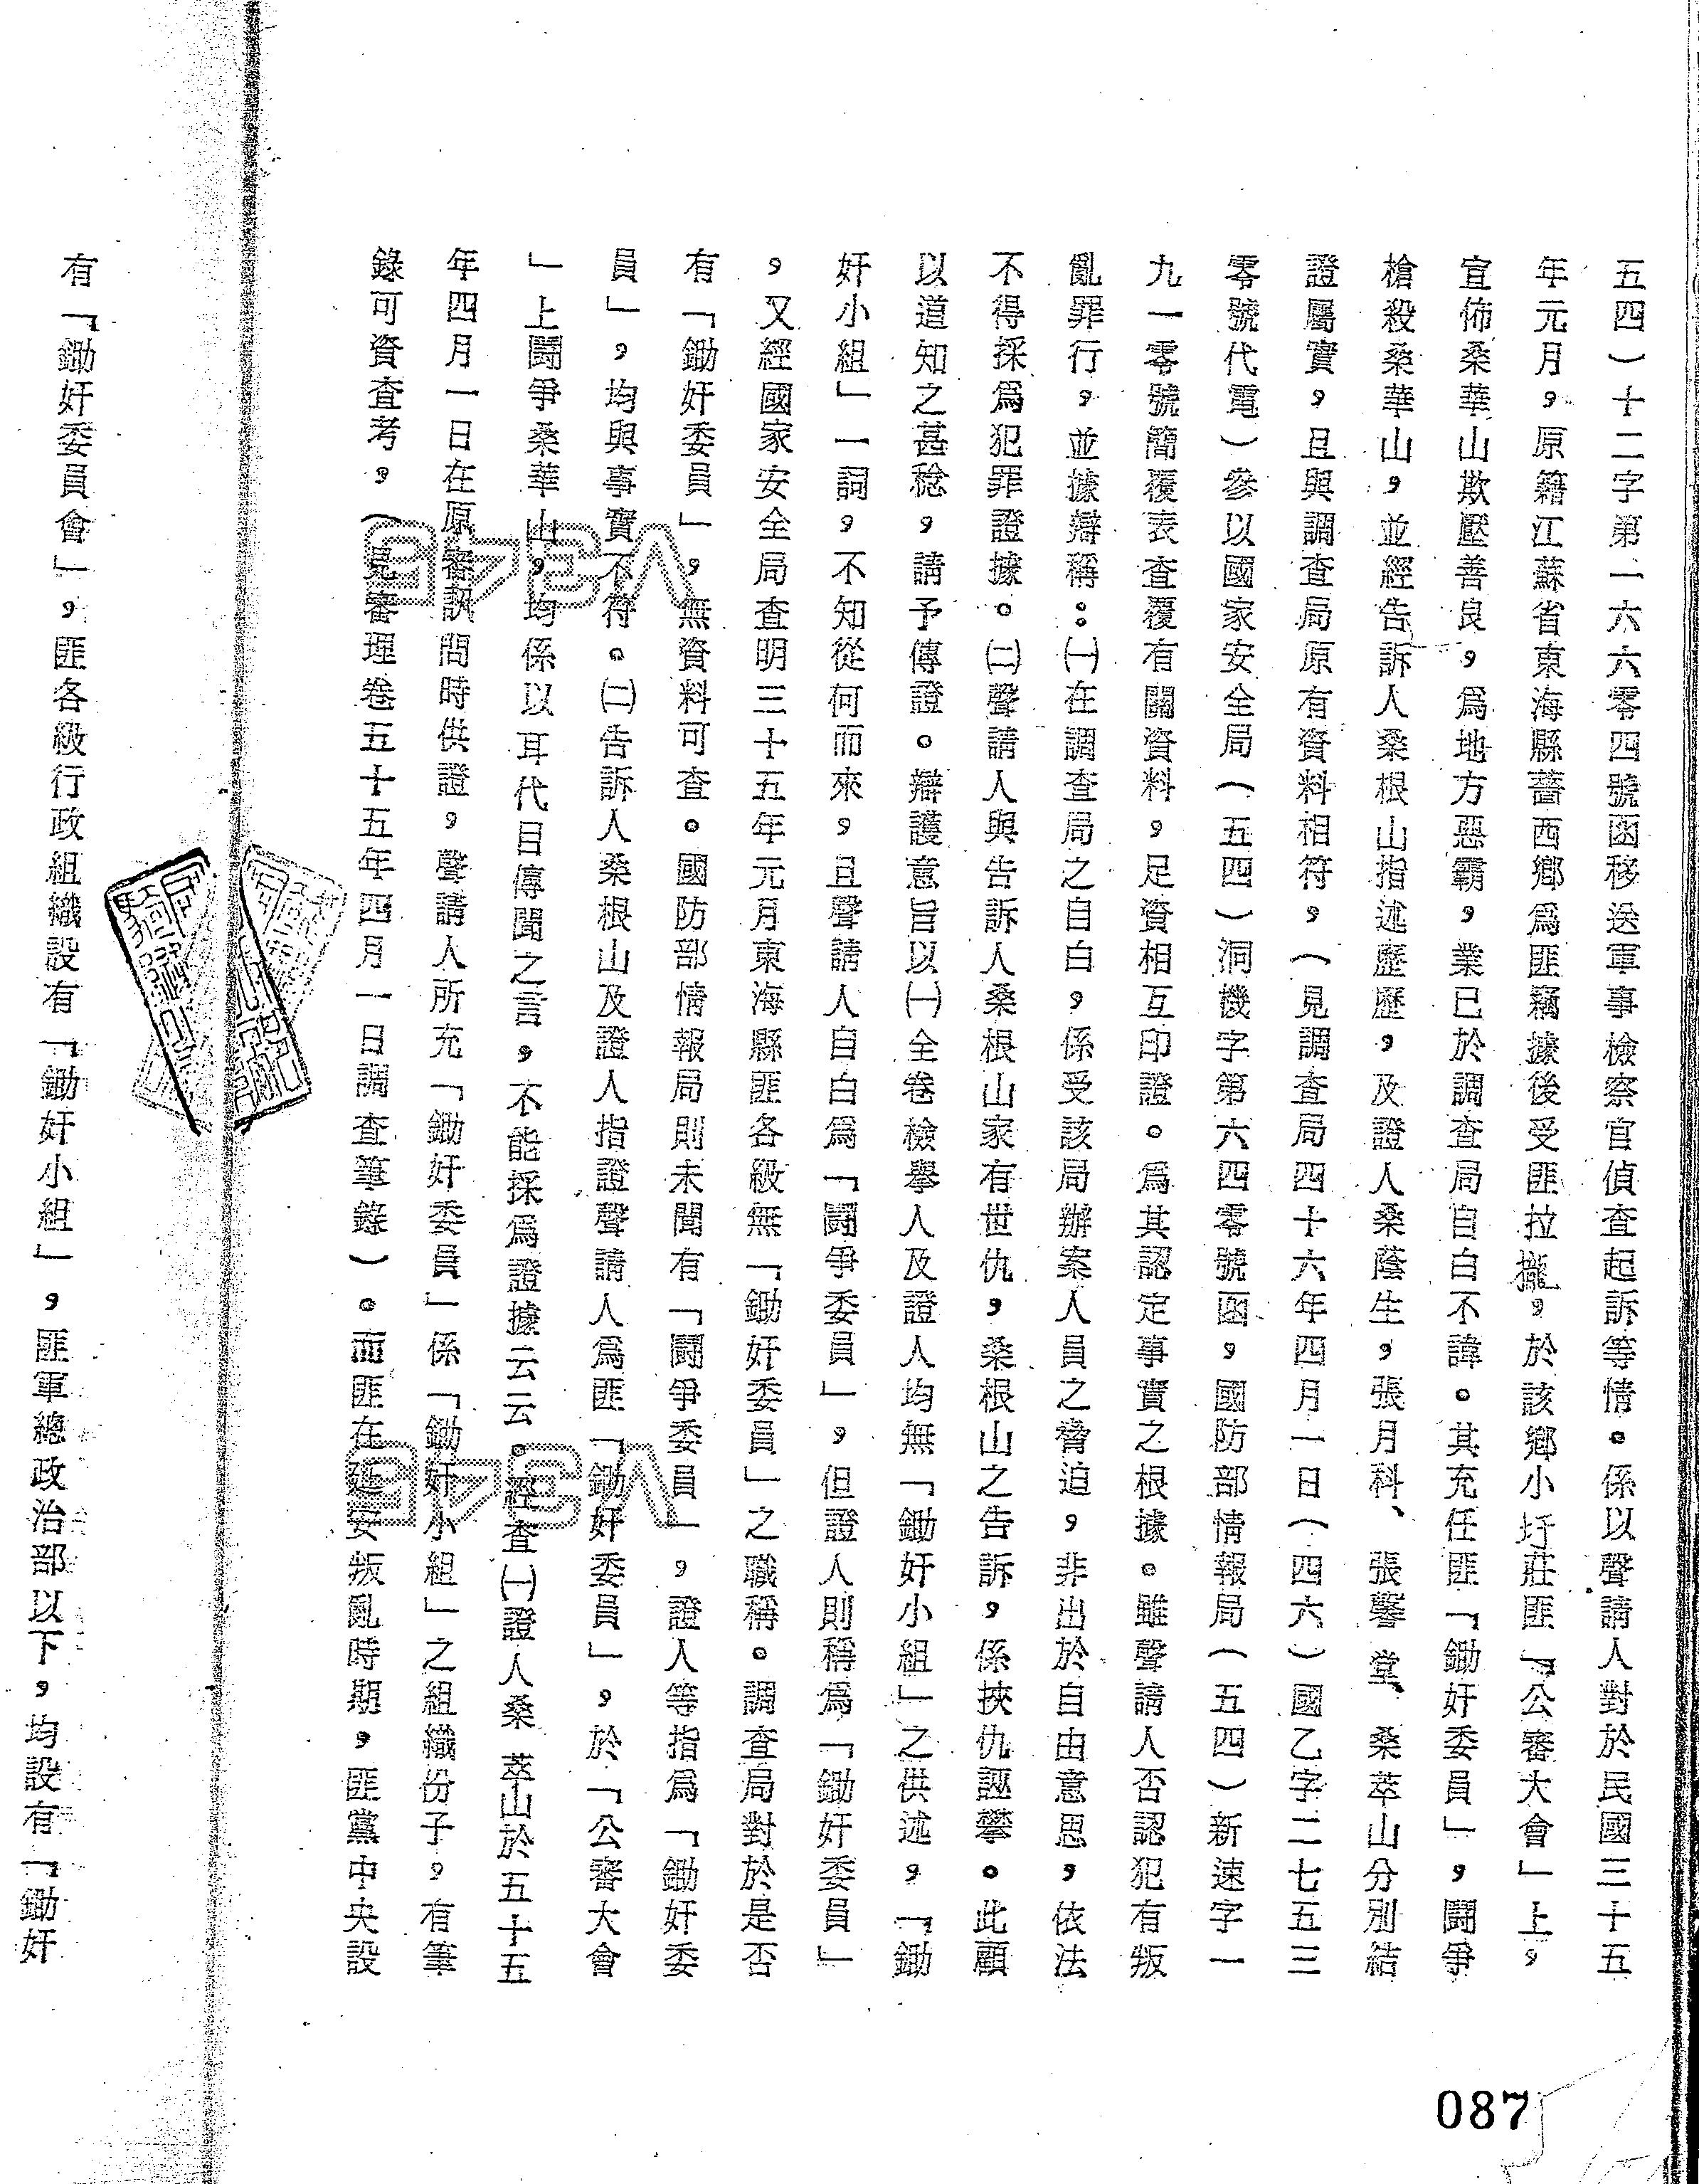 五四）十二字第一六六零四號函移送軍事檢察官偵查起訴等情。係以聲請人對於民國三十五
年元月，原籍江蘇省東海縣薔西鄉為匪竊據後受匪拉攏，於該鄉小圩莊匪「公審大會」上，
宣佈桑華山欺壓善良，為地方惡霸，業已於調查局自白不諱。其充任匪「鋤奸委員」，鬪爭
槍殺桑華山，並經告訴人桑根山指述歷歷，及證人桑蔭生，張月科、張馨堂、桑萃山分別結
證屬實，且與調查局原有資料相符，（見調查局四十六年四月一日（四六）國乙字二七五三
零號代電）參以國家安全局（五四）洞機字第六四零號函，國防部情報局（五四）新速字一
九一零號簡覆表查覆有關資料，足資相互印證。為其認定事實之根據。雖聲請人否認犯有叛
亂罪行，並據辯稱：㈠在調查局之自白，係受該局辦案人員之脅迫，非出於自由意思，依法
不得採為犯罪證據。㈡聲請人與告訴人桑根山家有世仇，桑根山之告訴，係挾仇誣攀。此顧
以道知之甚稔，請予傳證。辯護意旨以㈠全卷檢舉人及證人均無「鋤奸小組」之供述，「鋤
奸小組」一詞，不知從何而來，且聲請人自白為「鬪爭委員」，但證人則稱為「鋤奸委員」
，又經國家安全局查明三十五年元月東海縣匪各級無「鋤奸委員」之職稱。調查局對於是否
有「鋤奸委員」，無資料可查。國防部情報局則未聞有「鬪爭委員」，證人等指為「鋤奸委
員」，均與事實不符。㈡告訴人桑根山及證人指證聲請人為匪「鋤奸委員」，於「公審大會
」上鬪爭桑華山，均係以耳代目傳聞之言，不能採為證據云云。經查㈠證人桑萃山於五十五
年四月一日在原審訊問時供證，聲請人所充「鋤奸委員」係「鋤奸小組」之組織份子，有筆
錄可資查考，（見審理卷五十五年四月一日調查筆錄）。而匪在延安叛亂時期，匪黨中央設
有「鋤奸委員會」，匪各級行政組織設有「鋤奸小組」，匪軍總政治部以下，均設有「鋤奸
087